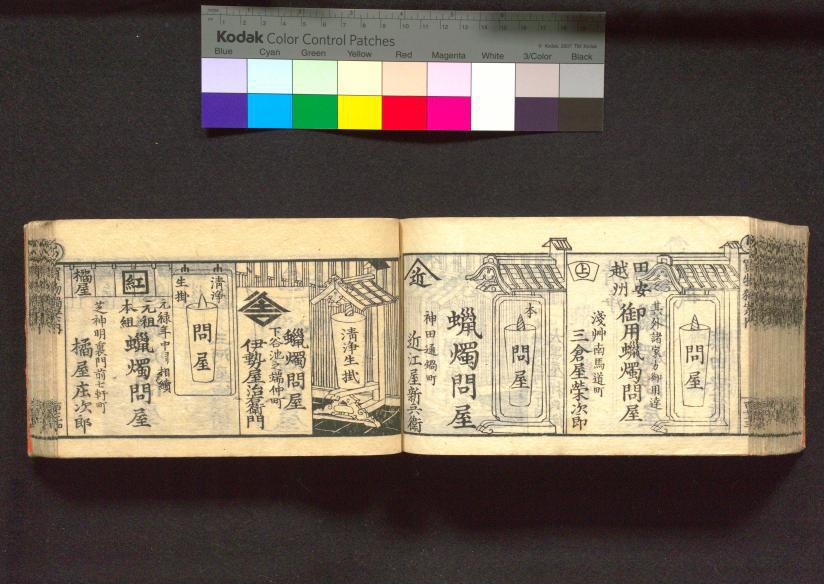 Kodak Color Control Patches
© Kodak, 2007 TM: Kodak
Blue Cyan Green Yellow Red Magenta White 3/Color Black
問屋
其外諸家方御用達
田安
越州
御用蠟燭問屋
上
淺艸南馬道町
三倉屋榮次郎
本
問屋
蠟燭問屋
近
神田通鍋町
近江屋新兵衛
清浄生掛
蠟燭問屋
下谷池之端仲町
伊勢屋治右衛門
清浄
生掛
問屋
元禄年中ゟ相續
紅
元祖
本組
蠟燭問屋
芝神明裏門前七軒町
橘屋
橘屋庄次郎